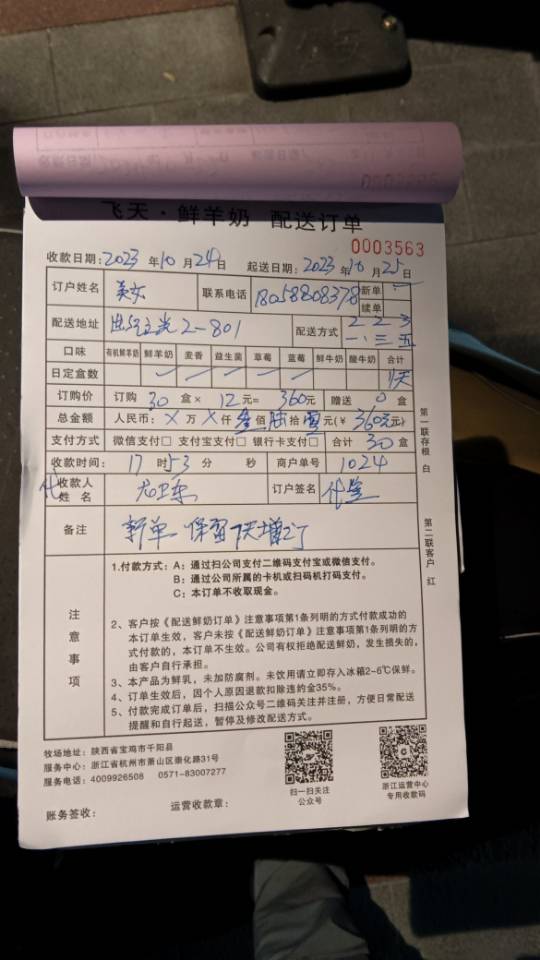 飞天·鲜羊奶 配送订单
0003563
收款日期:2023年10月24日 起送日期:2023年10月25日
订户姓名 美女 联系电话 18058808378 新单 续单
配送地址 2-801 配送方式 2 2 3 一、三 五
口味 有机鲜羊奶 鲜羊奶 麦香 益生菌 草莓 蓝莓 鲜牛奶 酸牛奶 合计
日定盒数 天
订购价 订购 30 盒× 12元= 360元 赠送 0 盒
总金额 人民币: X 万 X 仟 叁 佰 陆 拾 零 元(¥ 360元元)
支付方式 微信支付□ 支付宝支付□ 银行卡支付□ 合计 30 盒
收款时间: 17 时 53 分 秒 商户单号 1024
代收款人姓名 订户签名 代签
备注 新单 保留
注意事项
1.付款方式:A:通过扫公司支付二维码支付宝或微信支付。
B:通过公司所属的卡机或扫码机打码支付。
C:本订单不收取现金。
2、客户按《配送鲜奶订单》注意事项第1条列明的方式付款成功的
本订单生效,客户未按《配送鲜奶订单》注意事项第1条列明的方
式付款的,本订单不生效。公司有权拒绝配送鲜奶,发生损失的,
由客户自行承担。
3、本产品为鲜乳,未加防腐剂。未饮用请立即存入冰箱2-6℃保鲜。
4、订单生效后,因个人原因退款扣除违约金35%。
5、付款完成订单后,扫描公众号二维码关注并注册,方便日常配送
提醒和自行起送,暂停及修改配送方式。
第一联存根 白
第二联客户 红
牧场地址:陕西省宝鸡市千阳县
服务中心:浙江省杭州市萧山区崇化路31号
服务电话:4009926508 0571-83007277
扫一扫关注
公众号
浙江运营中心
专用收款码
账务签收: 运营收款章: